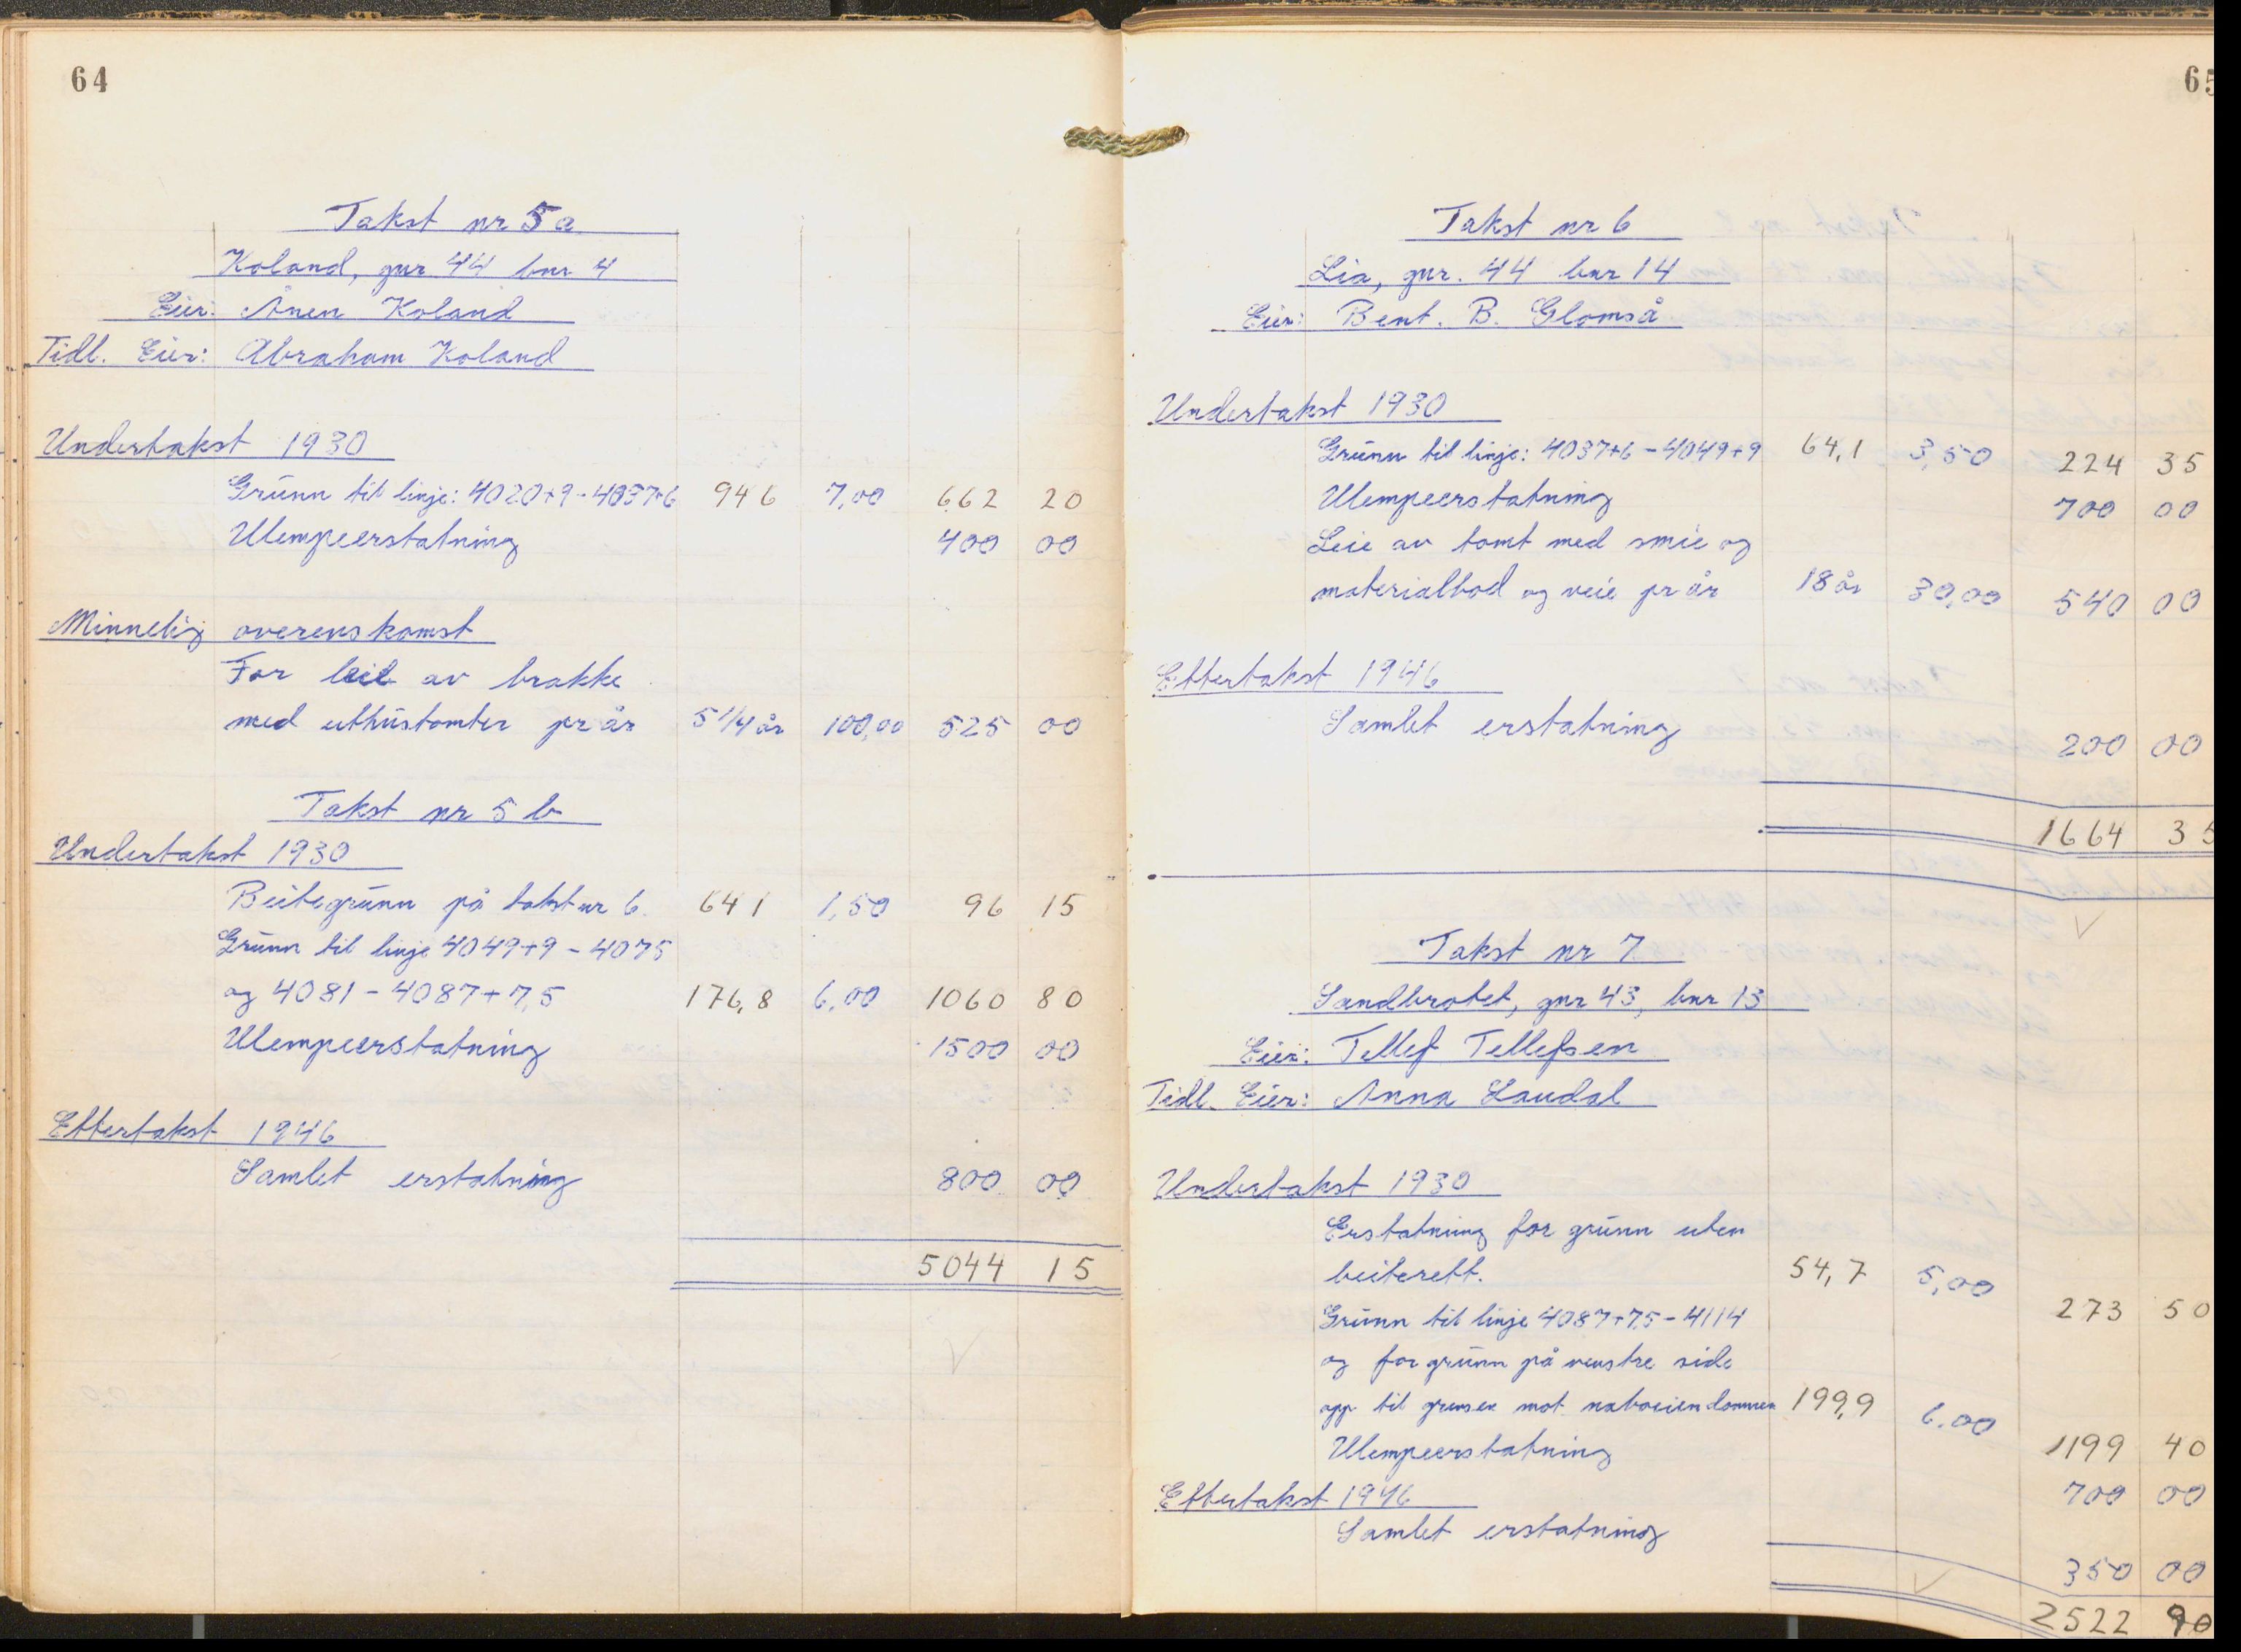 64
Takst nr 5a
Koland, gnr 44 bnr 4
Eier: Ånen Koland
Tidl. Eier: Abraham Koland
Undertakst 1930
Grunn til linje: 4020+9-4037+6 946 7,00 662 20
Ulempeerstatning 400 00
Minnelig overenskomst
For leie av brakke
med uthustomter pr år 5 1/4 år 100,00 525 00
Takst nr 5 b
Undertakst 1930
Beitegrunn på takst nr 6. 641 1,50 96 15
Grunn til linje 4049+9 - 4075
og 4081 - 4087+7,5 176,8 6,00 1060 80
Ulempeerstatning 1500 00
Ettertakst 1946
Samlet erstatning 800 00
5044 15
65
Takst nr 6
Lia, gnr. 44 bnr 14
Eier: Bent. B. Glomså
Undertakst 1930
Grunn til linje: 4037+6 - 4049+9 64,1 3,50 224 35
Ulempeerstatning 700 00
Leie av tomt med smie og
materialbod og veie pr år 18 år 30,00 540 00
Ettertakst 1946
Samlet erstatning 200 00
1664 35
Takst nr 7
Sandbrotet, gnr 43, bnr 13
Eier: Tellef Tellefsen
Tidl. Eier: Anna Laudal
Undertakst 1930
Erstatning for grunn uten
beiterett. 54,7 5,00 273 50
Grunn til linje 4087+7,5 - 4114
og for grunn på venstre side
opp til grensen mot naboeiendommen 199,9 6.00 1199 40
Ulempeerstatning 700 00
Ettertakst 1946
Samlet erstatning 350 00
2522 90